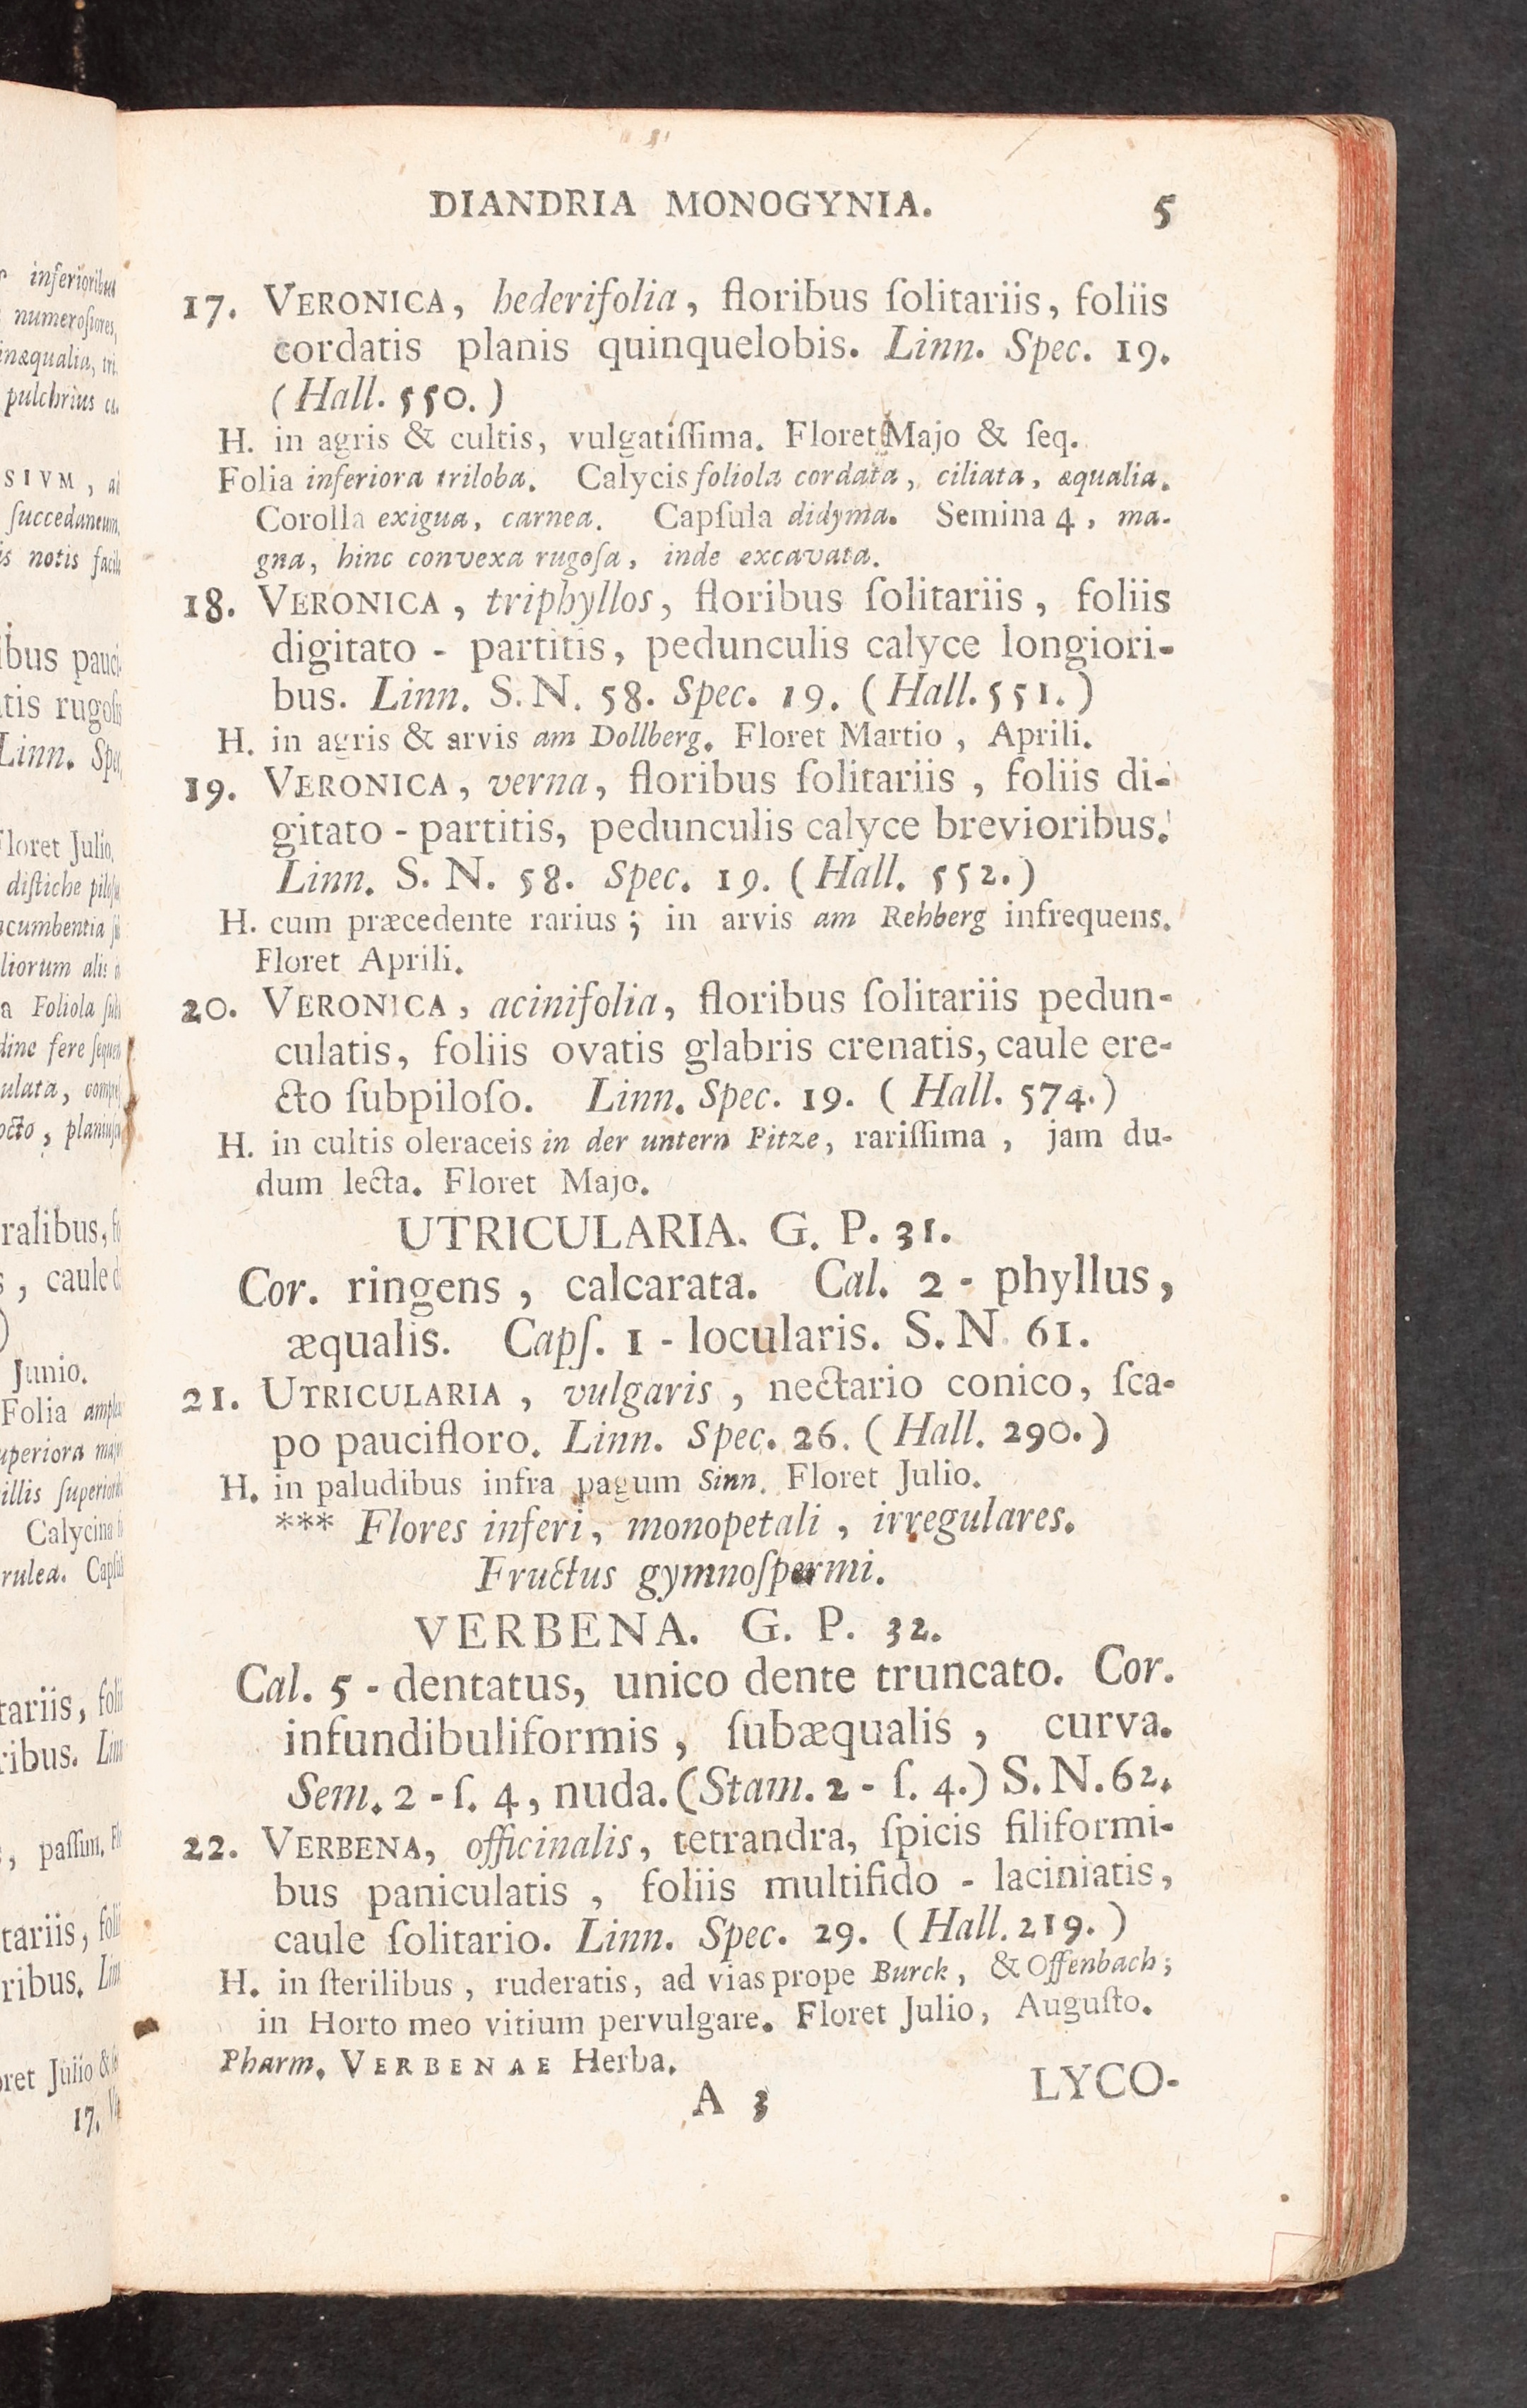 DIANDRIA MONOGYNIA. 5
17. VERONICA, hederifolia, floribus ſolitariis, foliis
cordatis planis quinquelobis. Linn. Spec. 19.
(Hall. 550.)
H. in agris & cultis, vulgatiſſima. Floret Majo & ſeq.
Folia inferiora triloba. Calycis foliola cordata, ciliata, æqualia.
Corolla exigua, carnea. Capſula didyma. Semina 4, ma-
gna, hinc convexa rugoſa, inde excavata.
18. VERONICA, triphyllos, floribus ſolitariis, foliis
digitato - partitis, pedunculis calyce longiori-
bus. Linn. S. N. 58. Spec. 19. (Hall. 551.)
H. in agris & arvis am Dollberg. Floret Martio, Aprili.
19. VERONICA, verna, floribus ſolitariis, foliis di-
gitato - partitis, pedunculis calyce brevioribus.
Linn. S. N. 58. Spec. 19. (Hall. 552.)
H. cum præcedente rarius; in arvis am Rehberg infrequens.
Floret Aprili.
20. VERONICA, acinifolia, floribus ſolitariis pedun-
culatis, foliis ovatis glabris crenatis, caule ere-
cto ſubpiloſo. Linn. Spec. 19. (Hall. 574.)
H. in cultis oleraceis in der untern Pitze, rariſſima, jam du-
dum lecta. Floret Majo.
UTRICULARIA. G. P. 31.
Cor. ringens, calcarata. Cal. 2 - phyllus,
æqualis. Capſ. 1 - locularis. S. N 61.
21. UTRICULARIA, vulgaris, nectario conico, ſca-
po paucifloro. Linn. Spec. 26. (Hall. 290.)
H. in paludibus infra pagum Sinn. Floret Julio.
*** Flores inferi, monopetali, irregulares.
Fructus gymnoſpermi.
VERBENA. G. P. 32.
Cal. 5 - dentatus, unico dente truncato. Cor.
infundibuliformis, ſubæqualis, curva.
Sem. 2 - ſ. 4, nuda. (Stam. 2 - ſ. 4.) S. N. 62.
22. VERBENA, officinalis, tetrandra, ſpicis filiformi-
bus paniculatis, foliis multifido - laciniatis,
caule ſolitario. Linn. Spec. 29. (Hall. 219.)
H. in ſterilibus, ruderatis, ad vias prope Burck, & Offenbach;
in Horto meo vitium pervulgare. Floret Julio, Auguſto.
Pharm. VERBENAE Herba.
A 3 LYCO-